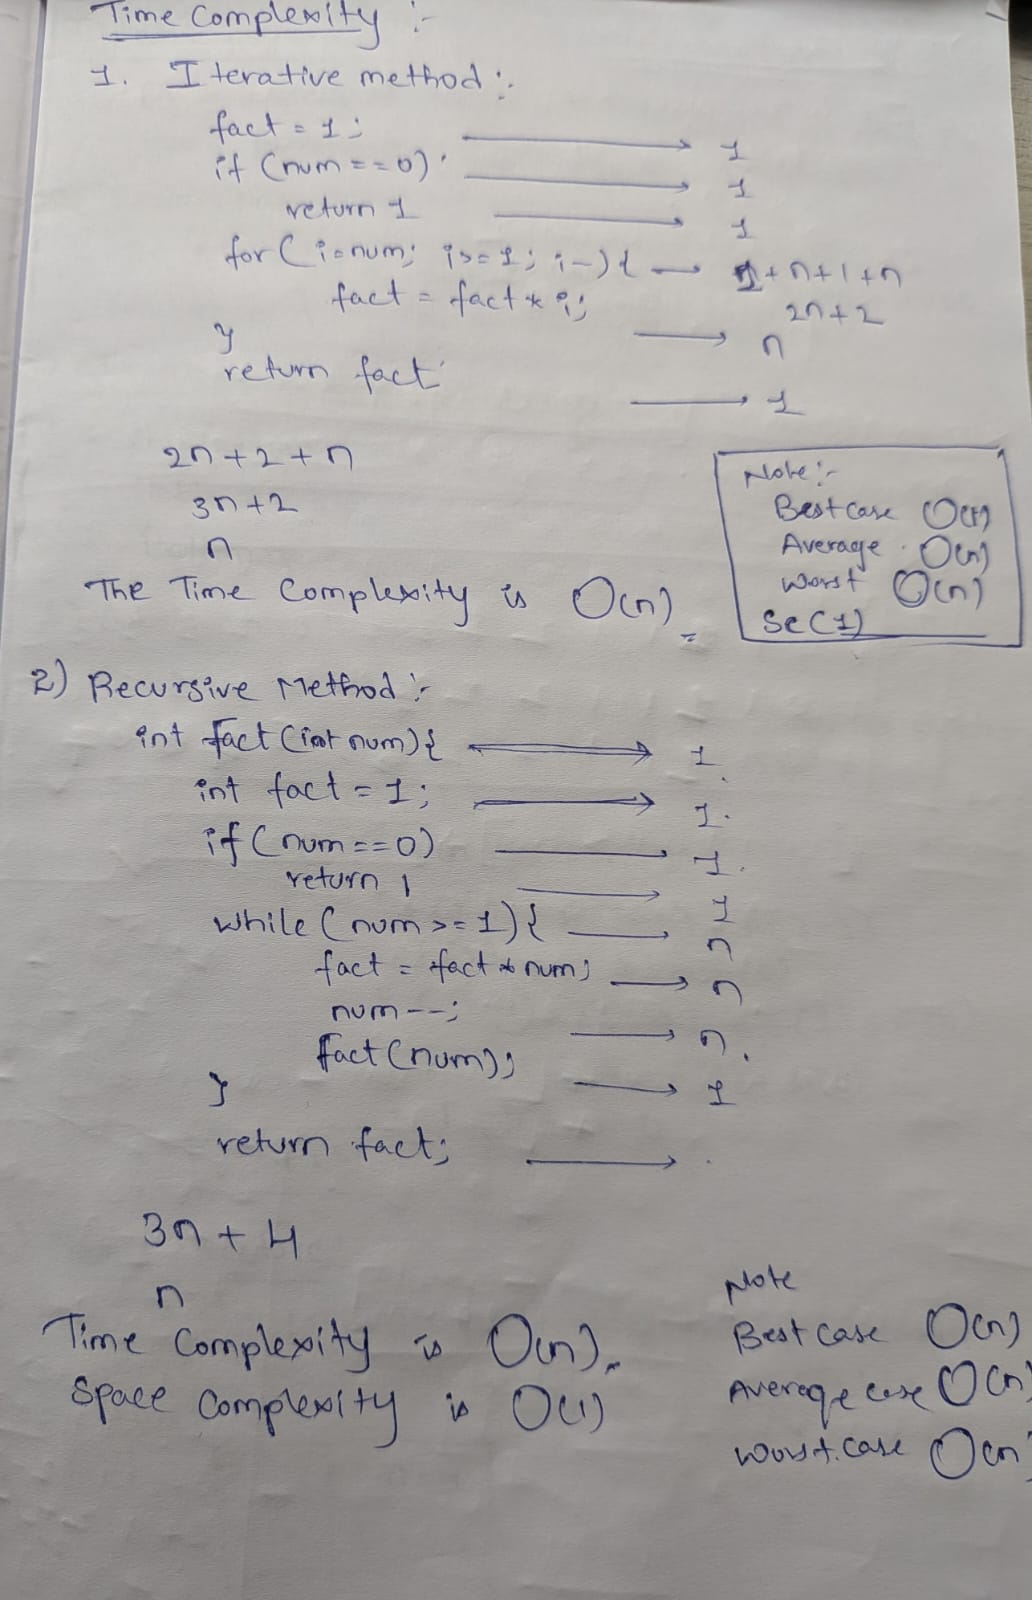 Time Complexity :-
1. Iterative method :-
fact = 1; → 1
if (num == 0) → 1
return 1 → 1
for (i=num; i>=1; i-) { → 1+n+1+n
2n+2
fact = fact * i; → n
}
return fact → 1
2n+2+n
3n+2
n
The Time Complexity is O(n)
Note:-
Best case
Average O(n)
Worst O(n)
Sc(1)
2) Recursive Method :-
int fact (int num) { → 1
int fact = 1; → 1.
if (num == 0) → 1.
return 1 → 1
while (num >= 1) { → n
fact = fact * num; → n
num--; → n.
fact(num); → 1
}
return fact; → .
3n + 4
n
Time Complexity is O(n).
Space Complexity is O(1)
Note
Best case O(n)
Average case O(n)
Worst. case O(n)